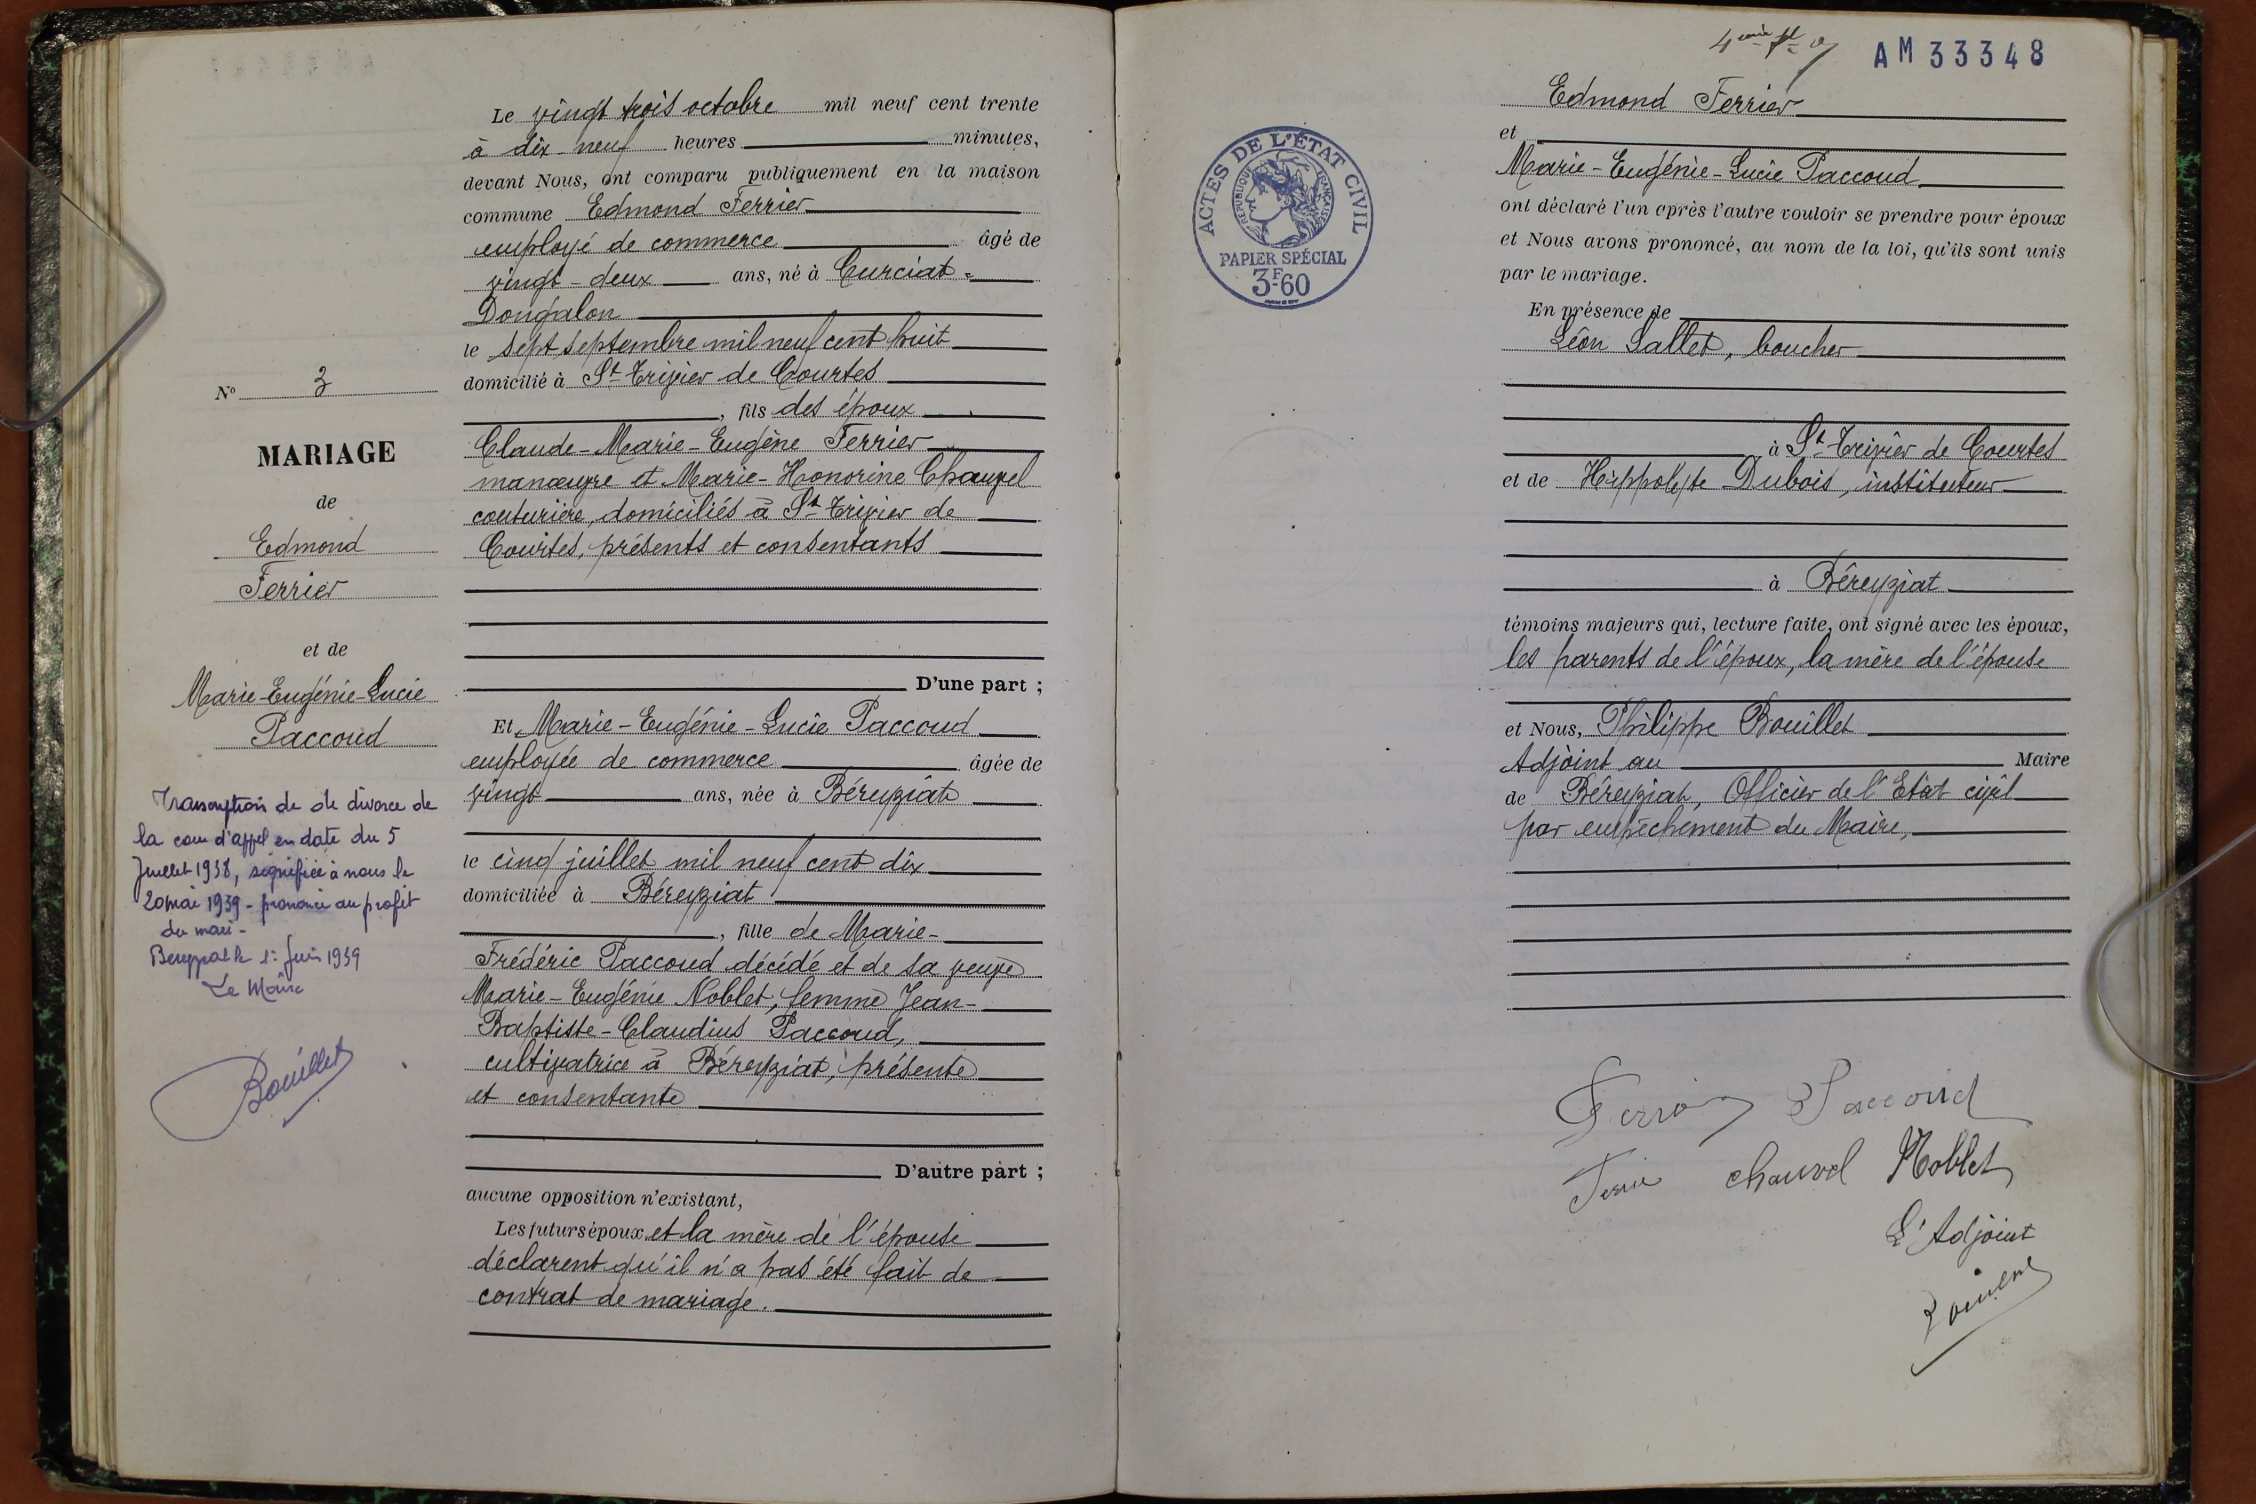 Le vingt trois octobre mil neuf cent trente
à dix neuf heures minutes,
devant Nous, ont comparu publiquement en la maison
commune Edmond Ferrier
employé de commerce âgé de
vingt-deux ans, né à Curciat-
Dongalon
le sept septembre mil neuf cent huit
domicilié à St Trivier de Courtes
, fils des époux
Claude-Marie-Eugène Ferrier
manœuvre et Marie-Honorine Chauvel
couturière, domiciliés à St Trivier de
Courtes, présents et consentants
D'une part ;
Et Marie-Eugénie-Lucie Paccoud
employée de commerce âgée de
vingt ans, née à Béreyziat
le cinq juillet mil neuf cent dix
domiciliée à Béreyziat
, fille de Marie-
Frédéric Paccoud décédé et de sa veuve
Marie-Eugénie Noblet, femme Jean-
Baptiste-Claudius Paccoud,
cultivatrice à Béreyziat, présente
et consentante
D'autre part ;
aucune opposition n'existant,
Les futurs époux et la mère de l'épouse
déclarent qu'il n'a pas été fait de
contrat de mariage.
No 3
MARIAGE
de
Edmond
Ferrier
et de
Marie-Eugénie-Lucie
Paccoud
Transcription de de divorce de
la cour d'appel en date du 5
Juillet 1938, signifiée à nous le
20 mai 1939 - prononcé au profit
du mari -
le 1: Juin 1939
Le Maire
Bouillet
4
AM 33348
ACTES DE L'ÉTAT CIVIL
RÉPUBLIQUE FRANÇAISE
PAPIER SPÉCIAL
3F60
Edmond Ferrier
et
Marie-Eugénie-Lucie Paccoud
ont déclaré l'un après l'autre vouloir se prendre pour époux
et Nous avons prononcé, au nom de la loi, qu'ils sont unis
par le mariage.
En présence de
Léon Sallet, boucher
à St Trivier de Courtes
et de Hippolyte Dubois, instituteur
à Béreyziat
témoins majeurs qui, lecture faite, ont signé avec les époux,
les parents de l'époux, la mère de l'épouse
et Nous, Philippe Bouillet
Adjoint au Maire
de Béreyziat, Officier de l'Etat civil
par empêchement du Maire,
Ferrier Paccoud
chauvel Noblet
L'Adjoint